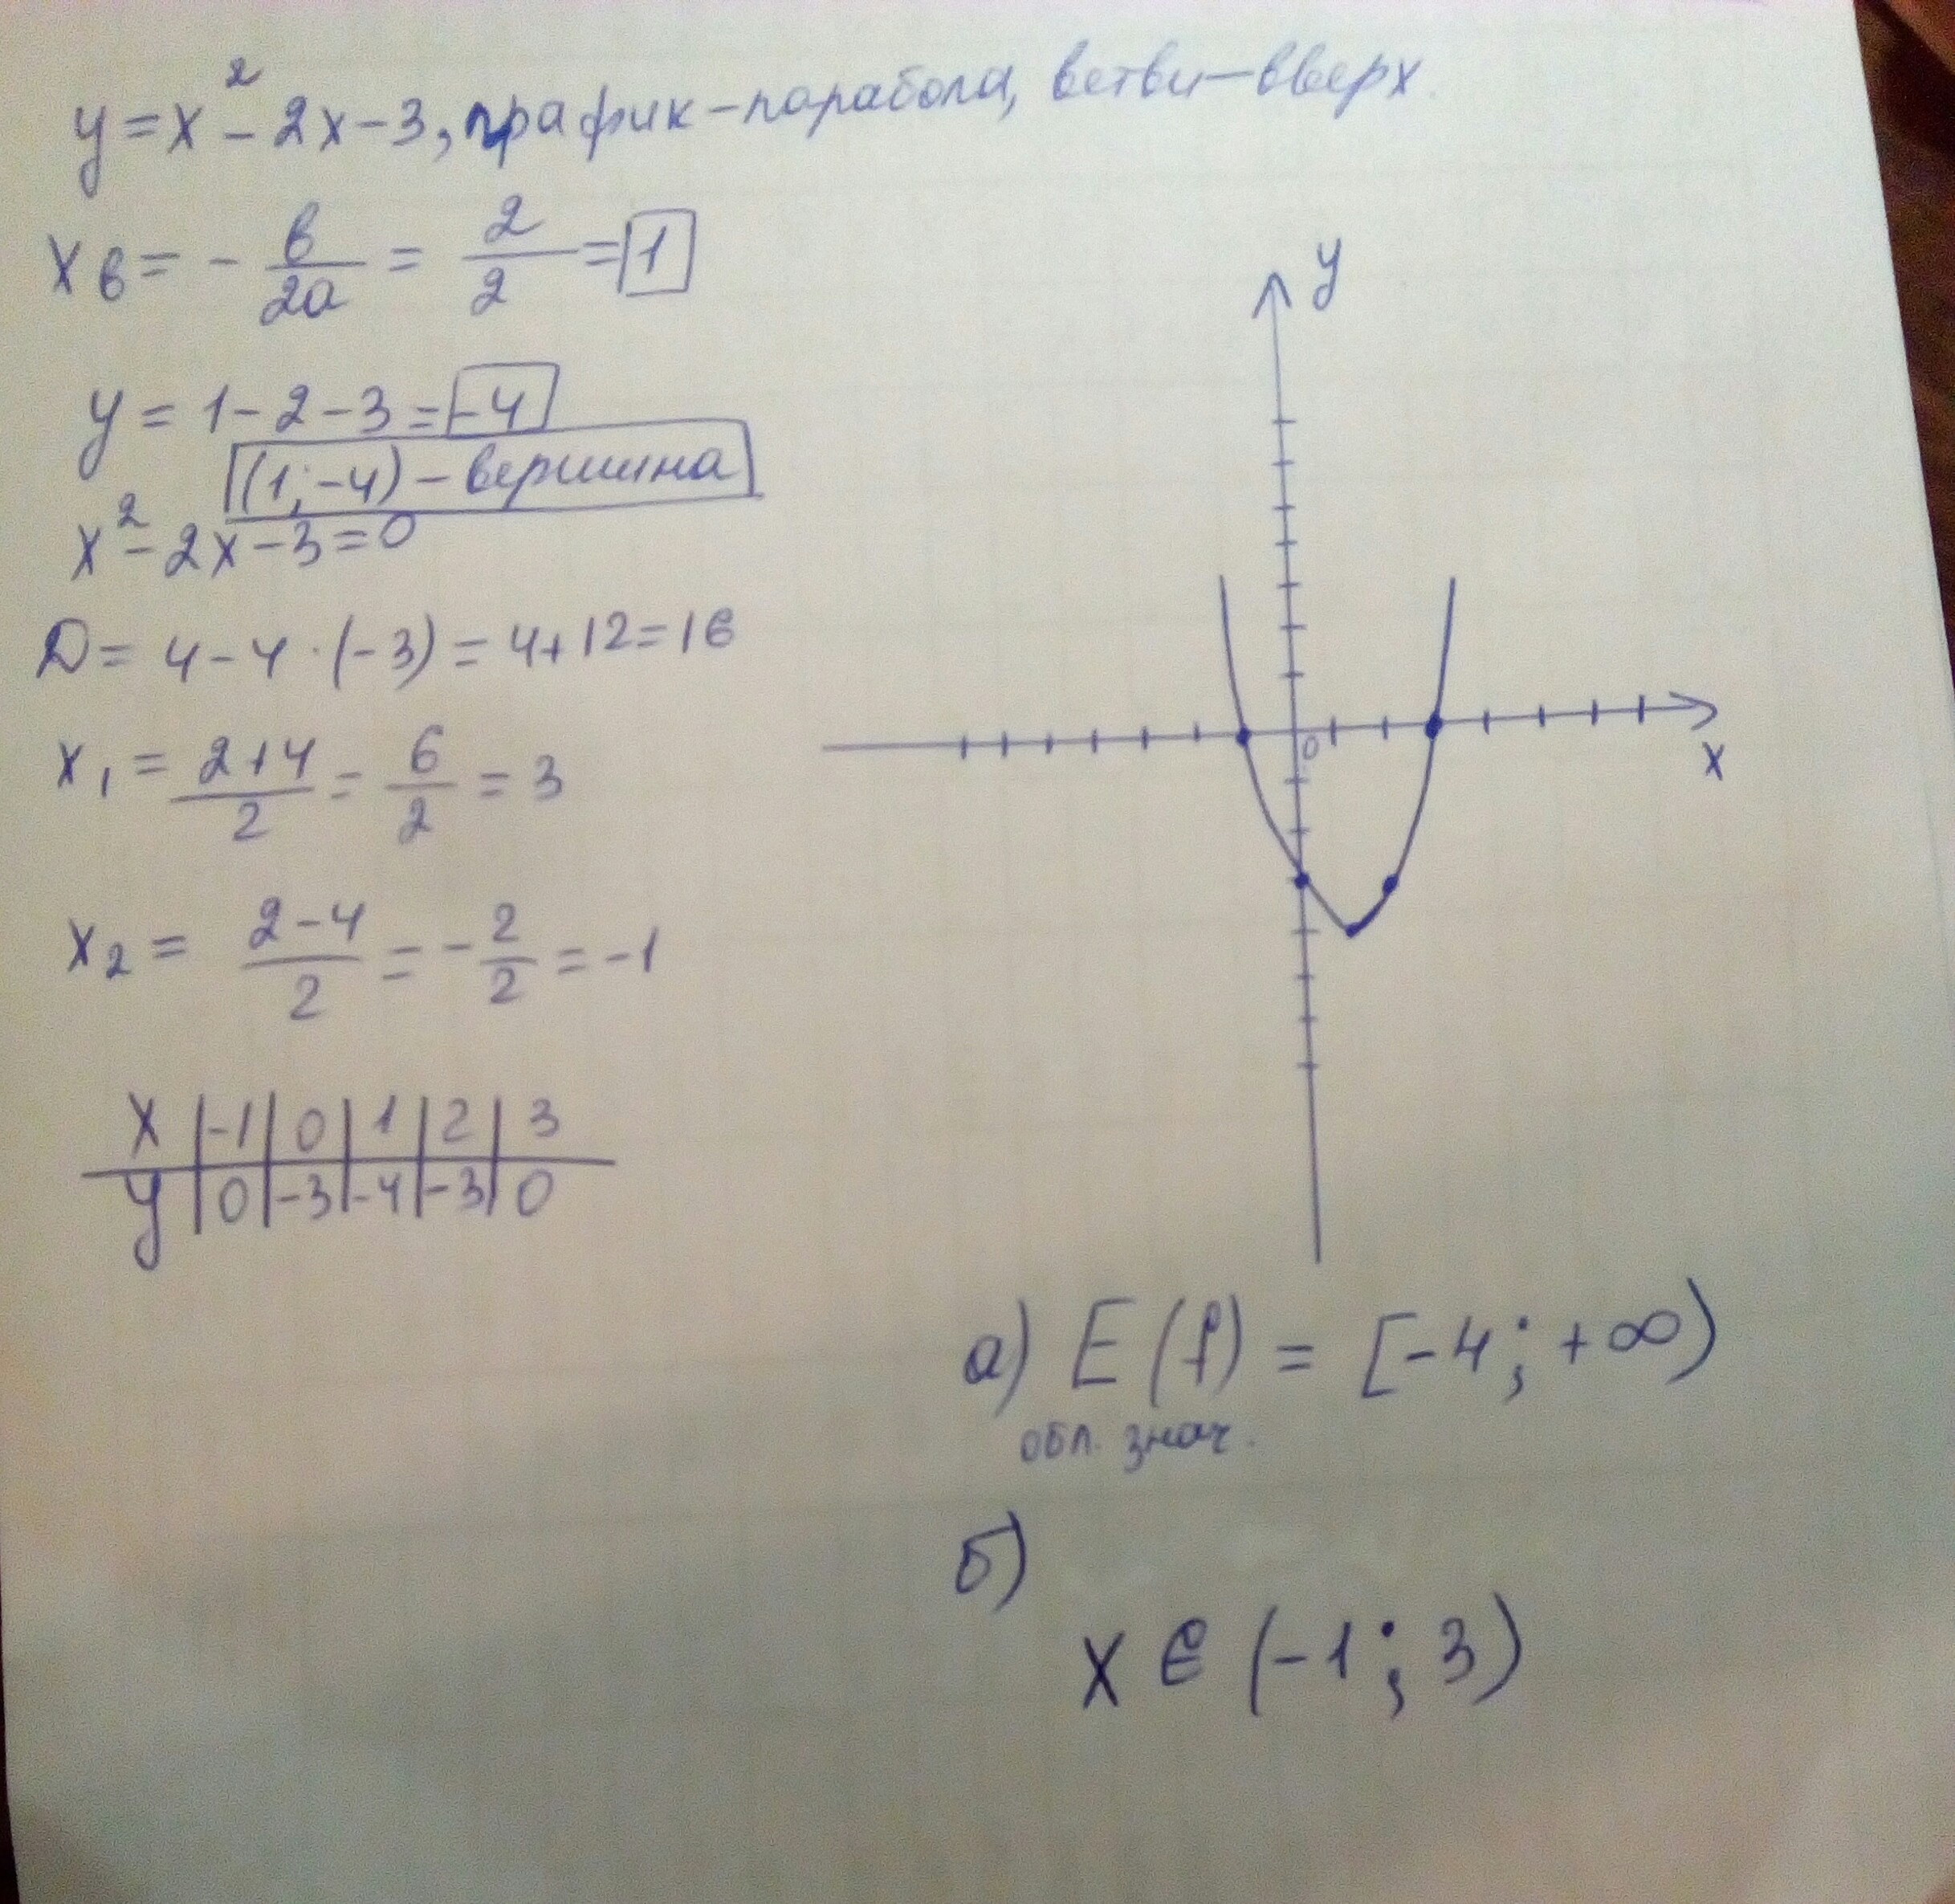 y = x² - 2x - 3, график - парабола, ветви - вверх.
xв = - в/2a = 2/2 = 1
y = 1 - 2 - 3 = -4
(1; -4) - вершина
x² - 2x - 3 = 0
D = 4 - 4 · (-3) = 4 + 12 = 16
x₁ = (2+4)/2 = 6/2 = 3
x₂ = (2-4)/2 = - 2/2 = -1
x | -1 | 0 | 1 | 2 | 3
y | 0 | -3 | -4 | -3 | 0
y
0
x
а) E(f) = [-4; +∞)
обл. знач.
б)
x ∈ (-1; 3)